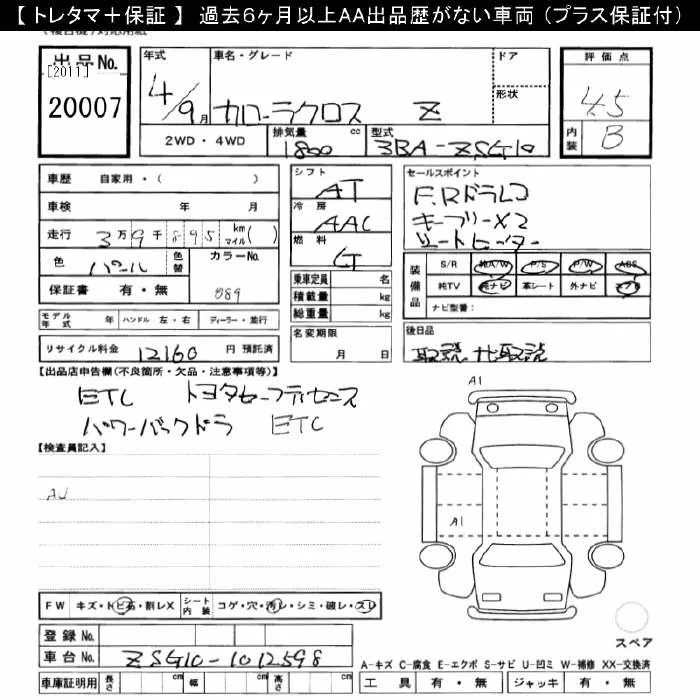 【 トレタマ＋保証 】 過去6ヶ月以上AA出品歴がない車両 (プラス保証付)
出品No.
[2011]
20007
年式
4/9月
車名・グレード
カローラクロス Z
ドア
形状
評価点
4.5
内装
B
2WD・4WD
排気量 cc
1800
型式
3BA-ZSG10
車歴 自家用・( )
車検 年 月
走行 3万9千895 km マイル( )
色 パール 色替
カラーNo. 089
保証書 有・無
シフト AT
冷房 AAC
燃料 G
乗車定員 名
積載量 kg
総重量 kg
セールスポイント
F.Rドラレコ
キーフリーX2
シートヒーター
装備品
S/R 純A/W P/S P/W ABS
純TV 純ナビ 革シート 外ナビ エアB
ナビ型番:
モデル年式 年 ハンドル 左・右 ディーラー・並行
リサイクル料金 12160 円 預託済
名変期限 月 日
後日品
取説 ナビ取説
【出品店申告欄(不良箇所・欠品・注意事項等)】
ETC トヨタセーフティセンス
パワーバックドラ ETC
【検査員記入】
AU
A1
A1
FW キズ・トビ石・割レX
シート内装 コゲ・穴・汚レ・シミ・破レ・スレ
登録No.
車台No. ZSG10-1012598
車庫証明用 長さ cm 幅 cm 高さ cm
スペア
A-キズ C-腐食 E-エクボ S-サビ U-凹ミ W-補修 XX-交換済
工具 有・無 ジャッキ 有・無